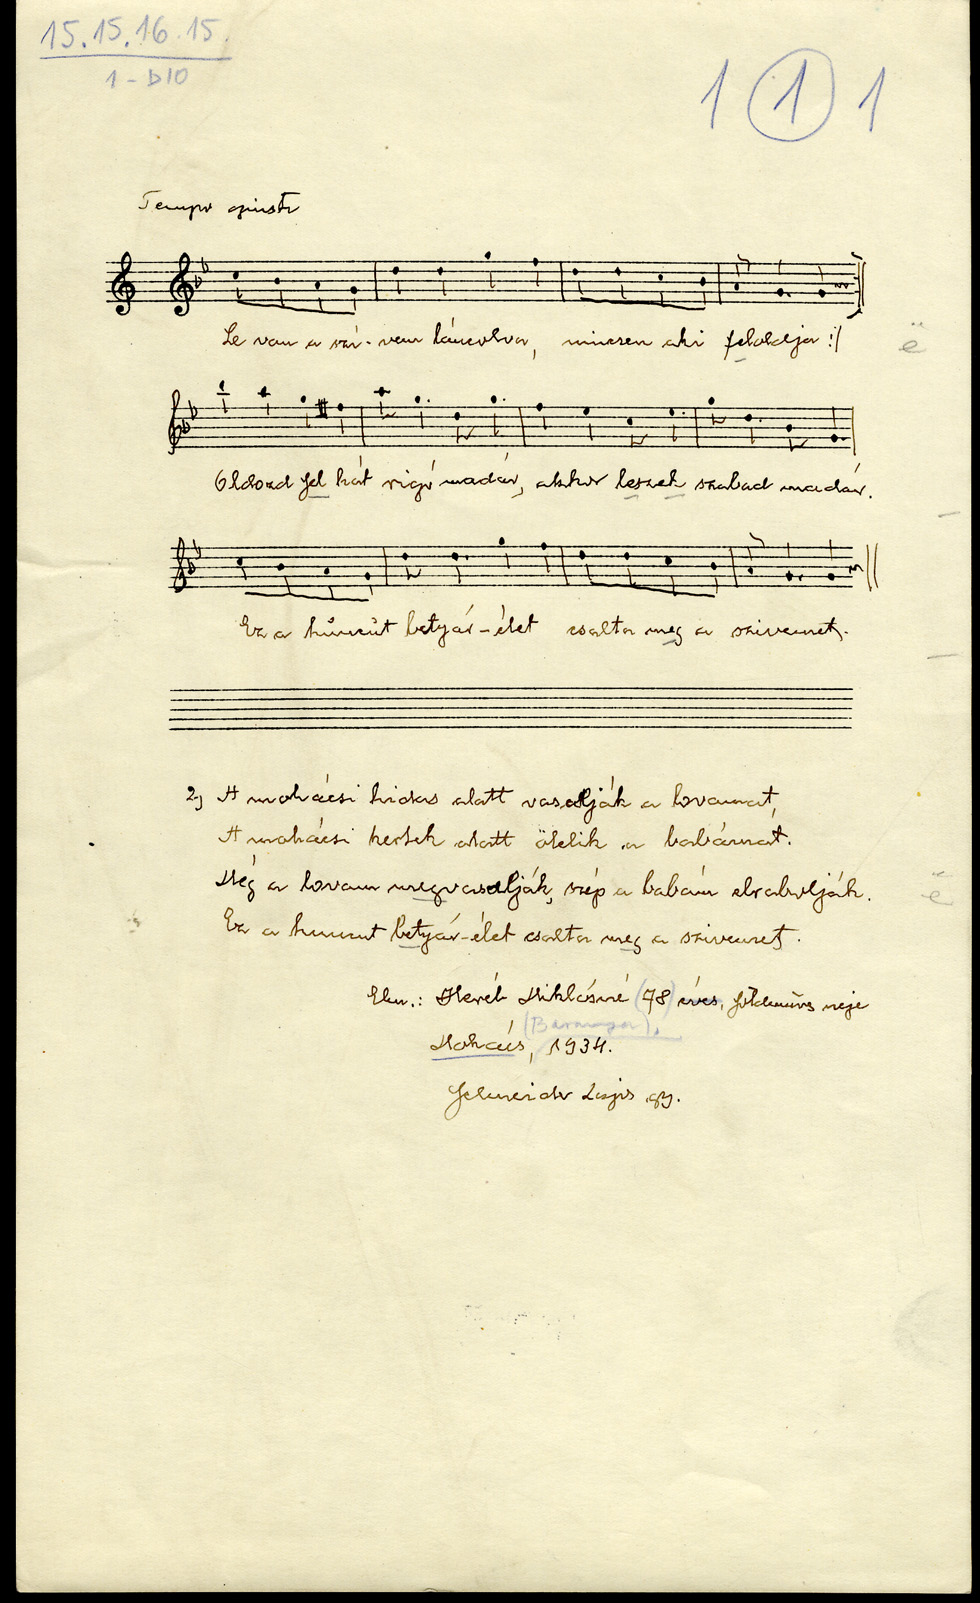 15.15.16.15.
1 - D10
1 1 1
Tempo giusto
Le van a szí-vem láncolva, nincsen aki feloldja :/
ë
Oldozd fel hát rigó madár, akkor leszek szabad madár.
Ez a huncut betyár-élet csalta meg a szivemet.
2, A mohácsi hidas alatt vasalják a lovamat,
A mohácsi kertek alatt ölelik a babámat.
Még a lovam megvasalják, szép a babám elrabolják.
ë
Ez a huncut betyár-élet csalta meg a szivemet.
Elm.: Miklósné (78) éves, földműves neje
(Baranya).
Mohács, 1934.
Schneider Lajos gy.